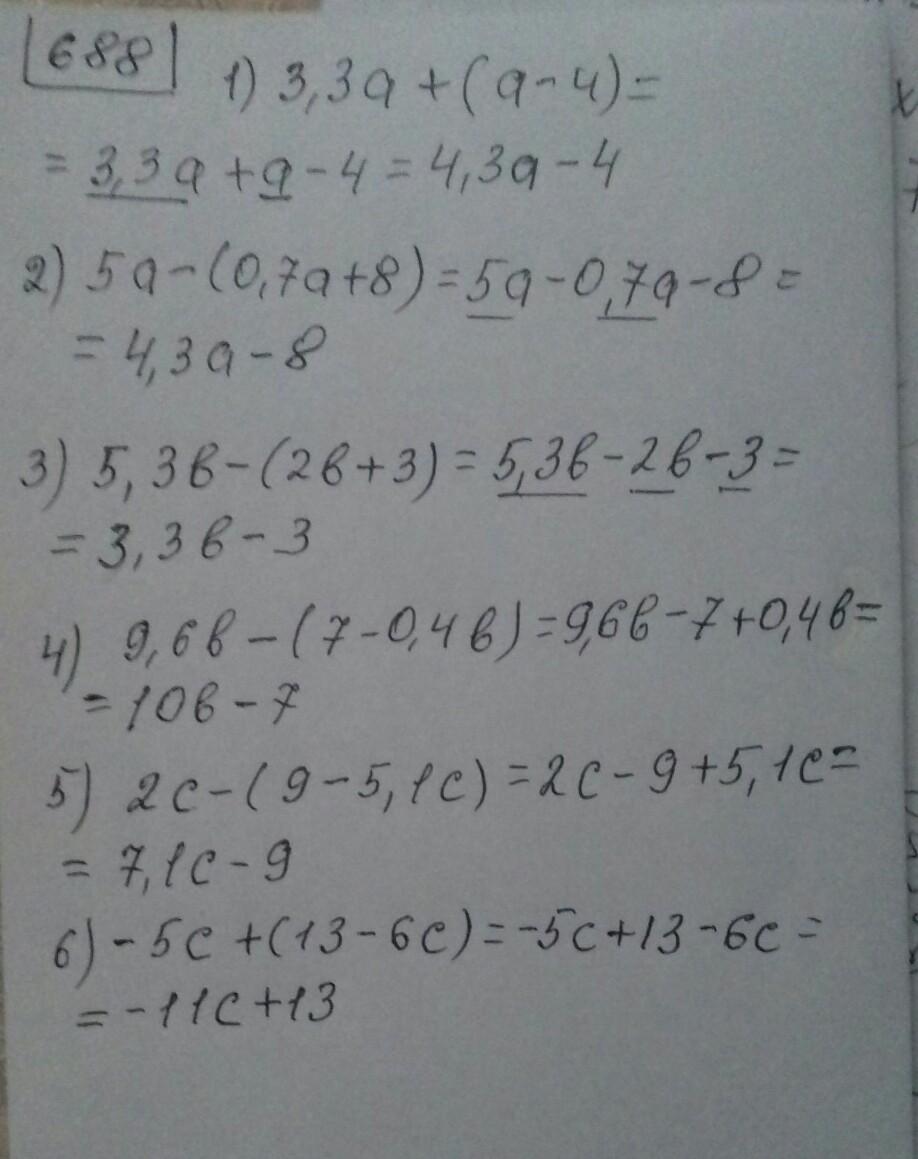 688
1) 3,3a + (a - 4) =
= 3,3a + a - 4 = 4,3a - 4
2) 5a - (0,7a + 8) = 5a - 0,7a - 8 =
= 4,3a - 8
3) 5,3в - (2в + 3) = 5,3в - 2в - 3 =
= 3,3в - 3
4) 9,6в - (7 - 0,4в) = 9,6в - 7 + 0,4в =
= 10в - 7
5) 2c - (9 - 5,1c) = 2c - 9 + 5,1c =
= 7,1c - 9
6) - 5c + (13 - 6c) = -5c + 13 - 6c =
= -11c + 13